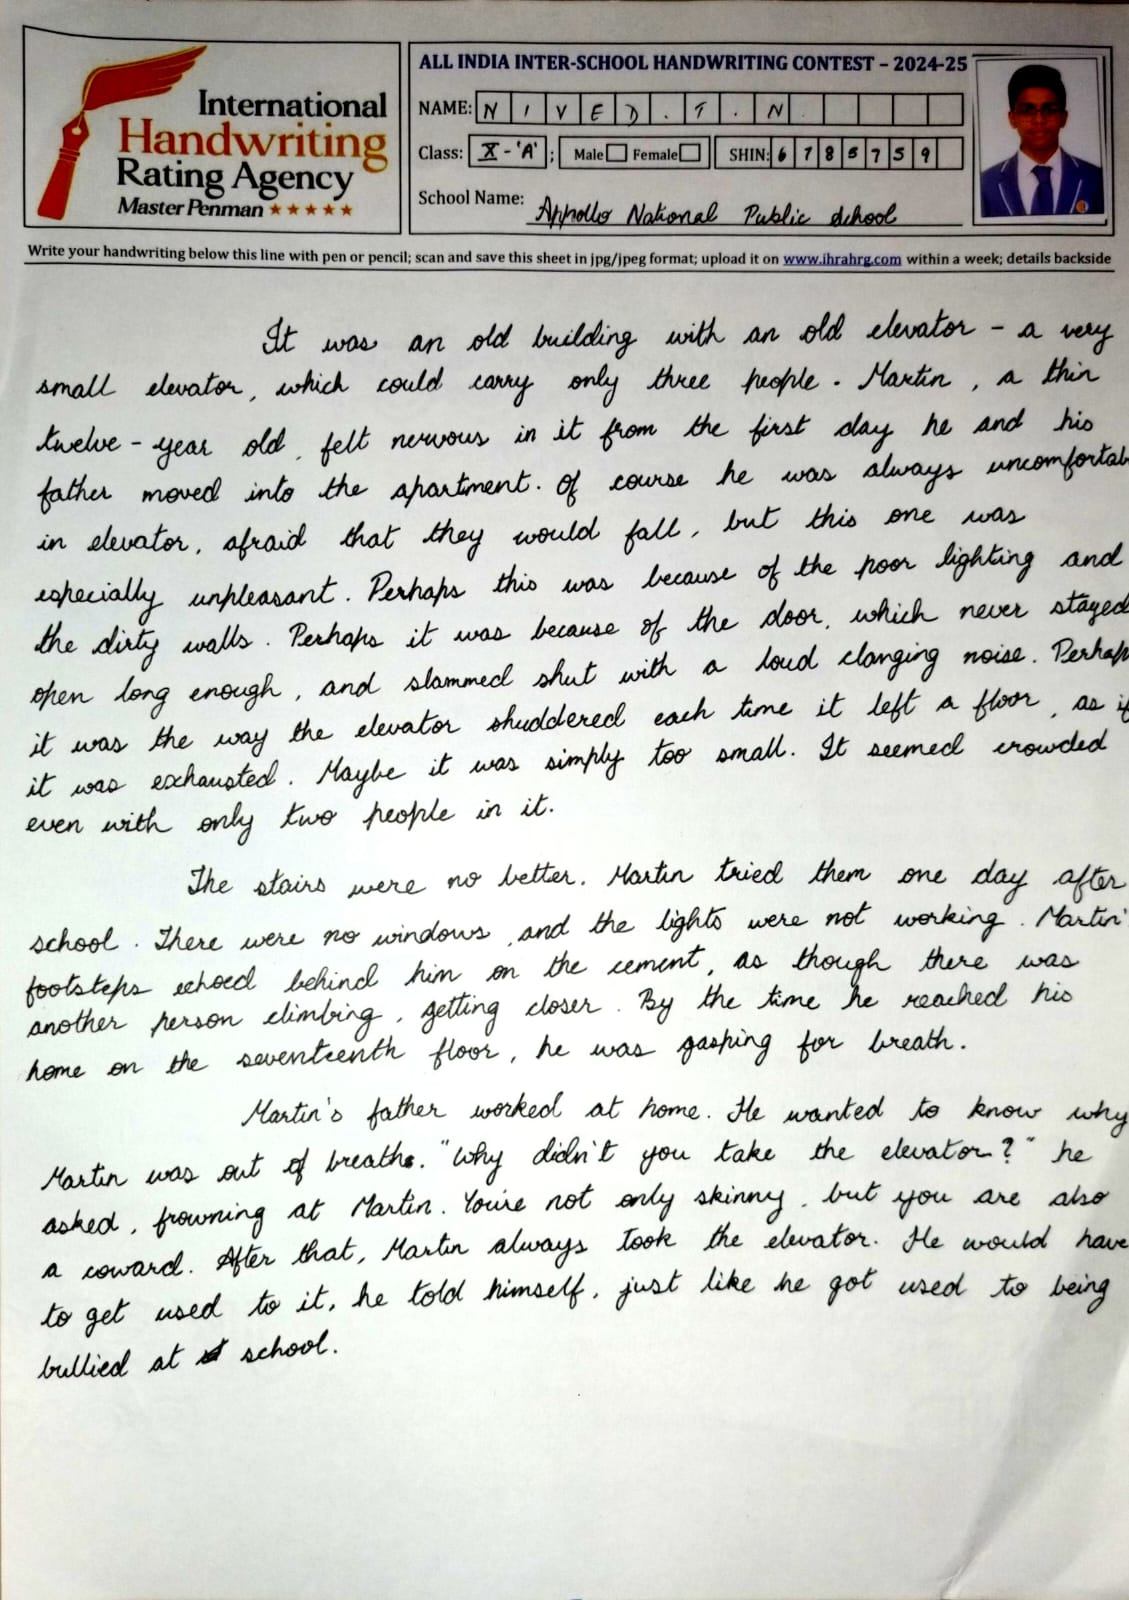 International
Handwriting
Rating Agency
Master Penman
ALL INDIA INTER-SCHOOL HANDWRITING CONTEST – 2024-25
NAME: NIVED.T.N
Class: X-'A' ; Male Female SHIN: 6785759
School Name: Appollo National Public School
Write your handwriting below this line with pen or pencil; scan and save this sheet in jpg/jpeg format; upload it on www.ihrahrg.com within a week; details backside
It was an old building with an old elevator - a very
small elevator, which could carry only three people. Martin, a thin
twelve-year old, felt nervous in it from the first day he and his
father moved into the apartment. Of course he was always uncomfortab
in elevator, afraid that they would fall, but this one was
especially unpleasant. Perhaps this was because of the poor lighting and
the dirty walls. Perhaps it was because of the door, which never stayed
open long enough, and slammed shut with a loud clanging noise. Perhap
it was the way the elevator shuddered each time it left a floor, as if
it was exhausted. Maybe it was simply too small. It seemed crowded
even with only two people in it.
The stairs were no better. Martin tried them one day after
school. There were no windows, and the lights were not working. Martin'
footsteps echoed behind him on the cement, as though there was
another person climbing, getting closer. By the time he reached his
home on the seventeenth floor, he was gasping for breath.
Martin's father worked at home. He wanted to know why
Martin was out of breath. "Why didn't you take the elevator?" he
asked, frowning at Martin. You're not only skinny, but you are also
a coward. After that, Martin always took the elevator. He would have
to get used to it, he told himself, just like he got used to being
bullied at school.